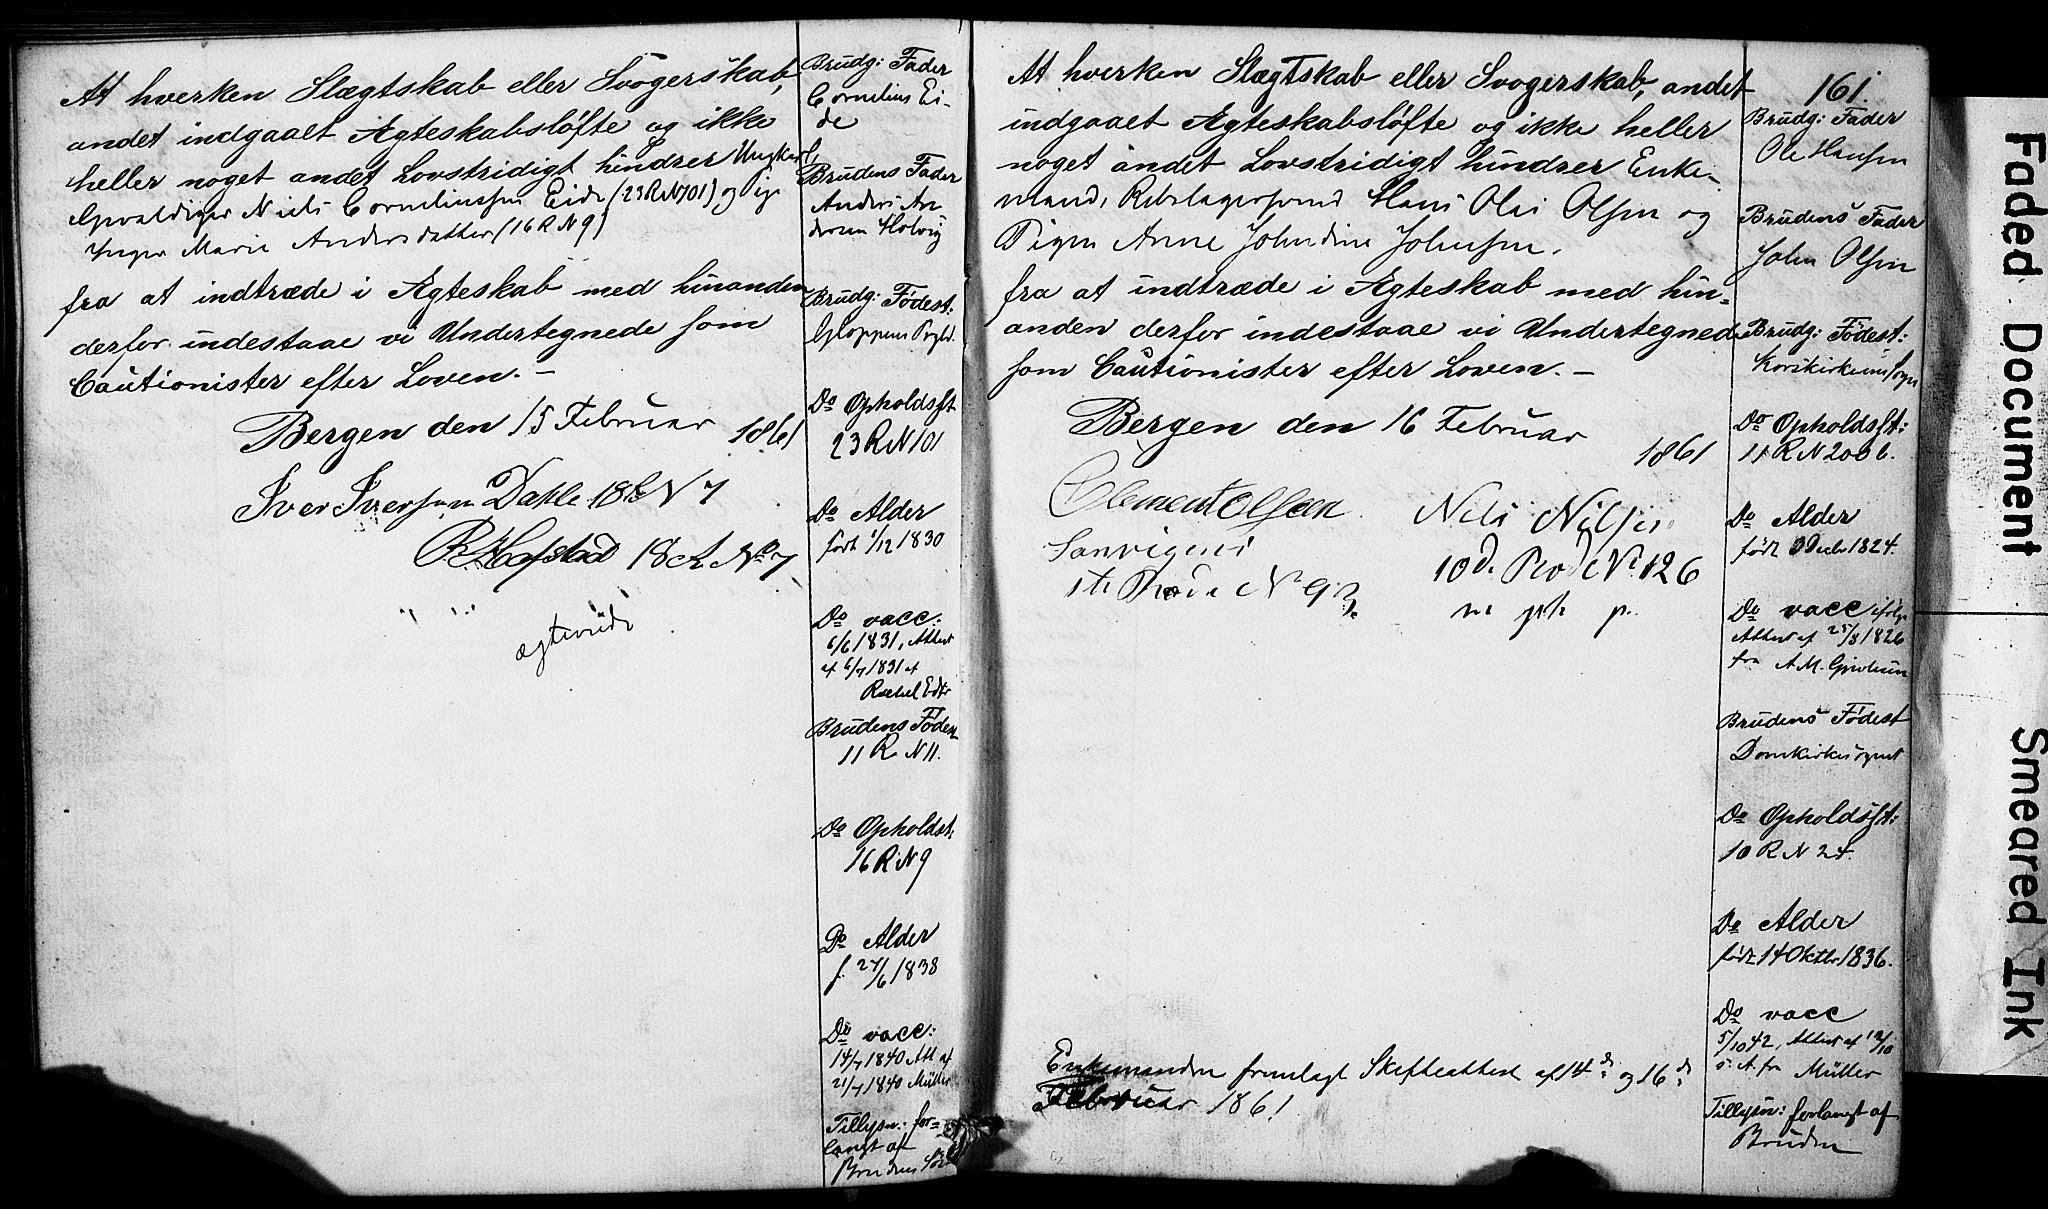 At hverken Slægtskab eller Svogerskab,
andet indgaaet Ægteskabsløfte og ikke
heller noget andet Lovstridigt hindrer Ungkarl,
Gevaldiger Niels Corneliussen Eide (23 R N 101) og Pige
Inger Marie Andersdatter (16 R N 9)
fra at indtræde i Ægteskab med hinanden
derfor indestaae vi Undertegnede som
Cautionister efter Loven. –
Bergen den 15 Februar 1861
Iver Iversen Dahle 18 R N 7
Hofstad 18 R No 7
" "
Brudg: Fader
Cornelius Ei-
de
Brudens Fader
Anders An
dersen Holvig
Brudg: Fødest:
Gloppens Prgld.
Do Opholdsst
23 R N 101
Do Alder
født 1/12 1830
Do vacc:
6/6 1831, Attest
af 6/7 1831 af
Rachel Edtr
Brudens Fødest
11 R N 11.
Do Opholdst:
16 R N 9
Do Alder
f. 27/6 1838
Do vacc:
14/7 1840 Att af
21/7 1840 Müller
Tillysn: for=
langt af
Brudens
At hverken Slægtskab eller Svogerskab, andet
indgaaet Ægteskabsløfte og ikke heller
noget andet Lovstridigt hindrer Enke-
mand, Rebslagersvend Hans Olai Olsen og
Pigen Anne Johndine Johnsen.
fra at indtræde i Ægteskab med hin=
anden derfor indestaae vi Undertegnede
som Cautionister efter Loven. –
Bergen den 16 Februar 1861
Clement Olsen
Sanvigens
1te Rode N 93.
Nils Nilsen
10d. Rode No 126
m p h p.
Enkemanden fremlagt Skifteattest af 14d. og 16d.
Februar 1861.
161.
Brudg: Fader
Ole Hansen
Brudens Fader
John Olsen
Brudg: Fødest:
Korskirkens Sogn
Do Opholdsst:
11 R N 200 b.
Do Alder
født 3 Decbr 1824.
Do vacc ifølge
Attest af 25/8 1826
fra A.M.
Brudens Fødest
Domkirkesognet
Do Opholdsst:
10 R N 24.
Do Alder
født 14 Oktbr 1836.
Do vacc
5/10 42, Attest af 12/10
s. A. fra Müller
Tillysn: forlangt af
Bruden
Faded Document
Smeared Ink